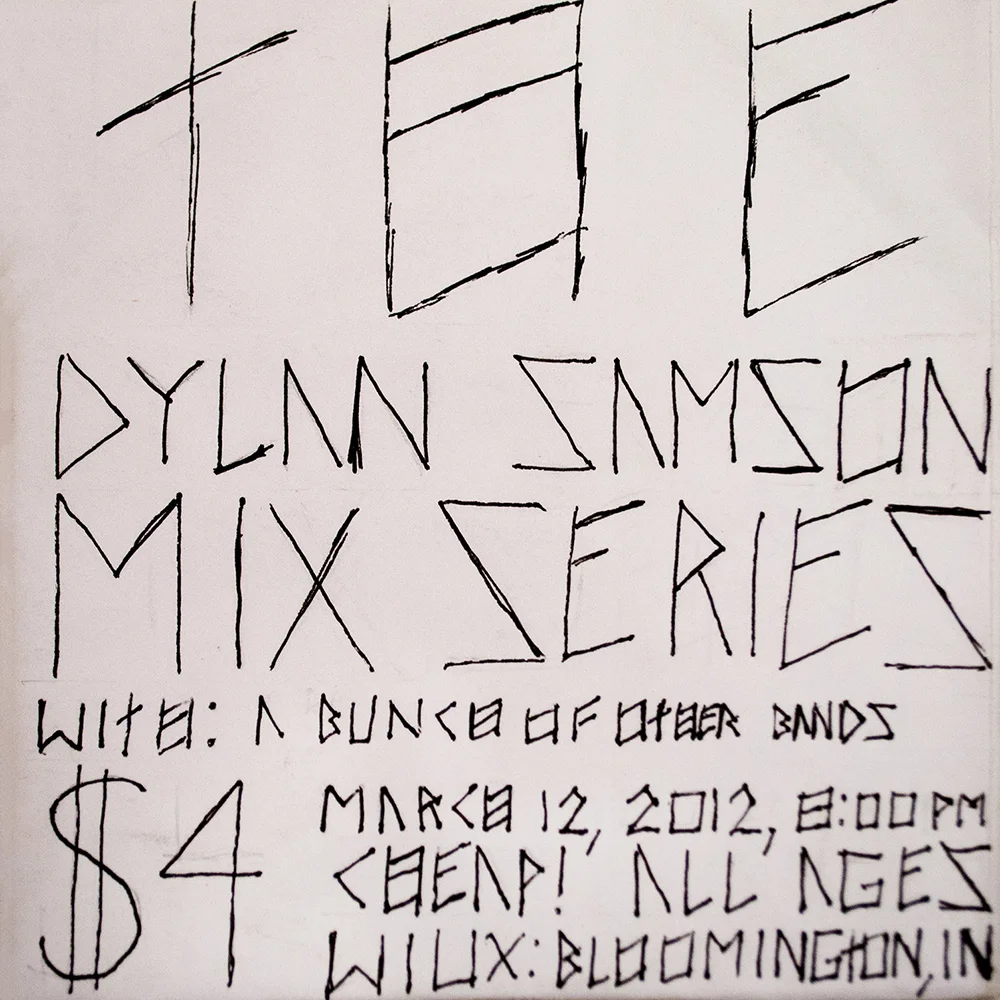 THE
DYLAN SAMSON
MIX SERIES
WITH: A BUNCH OF OTHER BANDS
$4
MARCH 12, 2012, 8:00 PM
CHEAP! ALL AGES
WIUX: BLOOMINGTON, IN